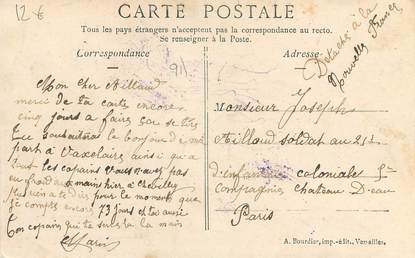 12 €
CARTE POSTALE
Tous les pays étrangers n'acceptent pas la correspondance au recto.
Se renseigner à la Poste.
Correspondance
Adresse
Détaché à la
Nouvelle France
91
Mon cher Aillaud
merci de ta carte encore
cinq jours a faire
le bonjour de ma
part à Vaxelaire ainsi qu a
tout les copains vous avez pas
eu froid mains hier à Chevilly
plus rien a te dire pour le moment que
je compte encore 73 jours et toi aussi
Ton copain qui te serre la main
Marin
Monsieur Joseph
Aillaud soldat au 21e
d'infanterie coloniale 5e
compagnie Chateau D'eau
Paris
A. Bourdier, imp.-édit., Versailles.